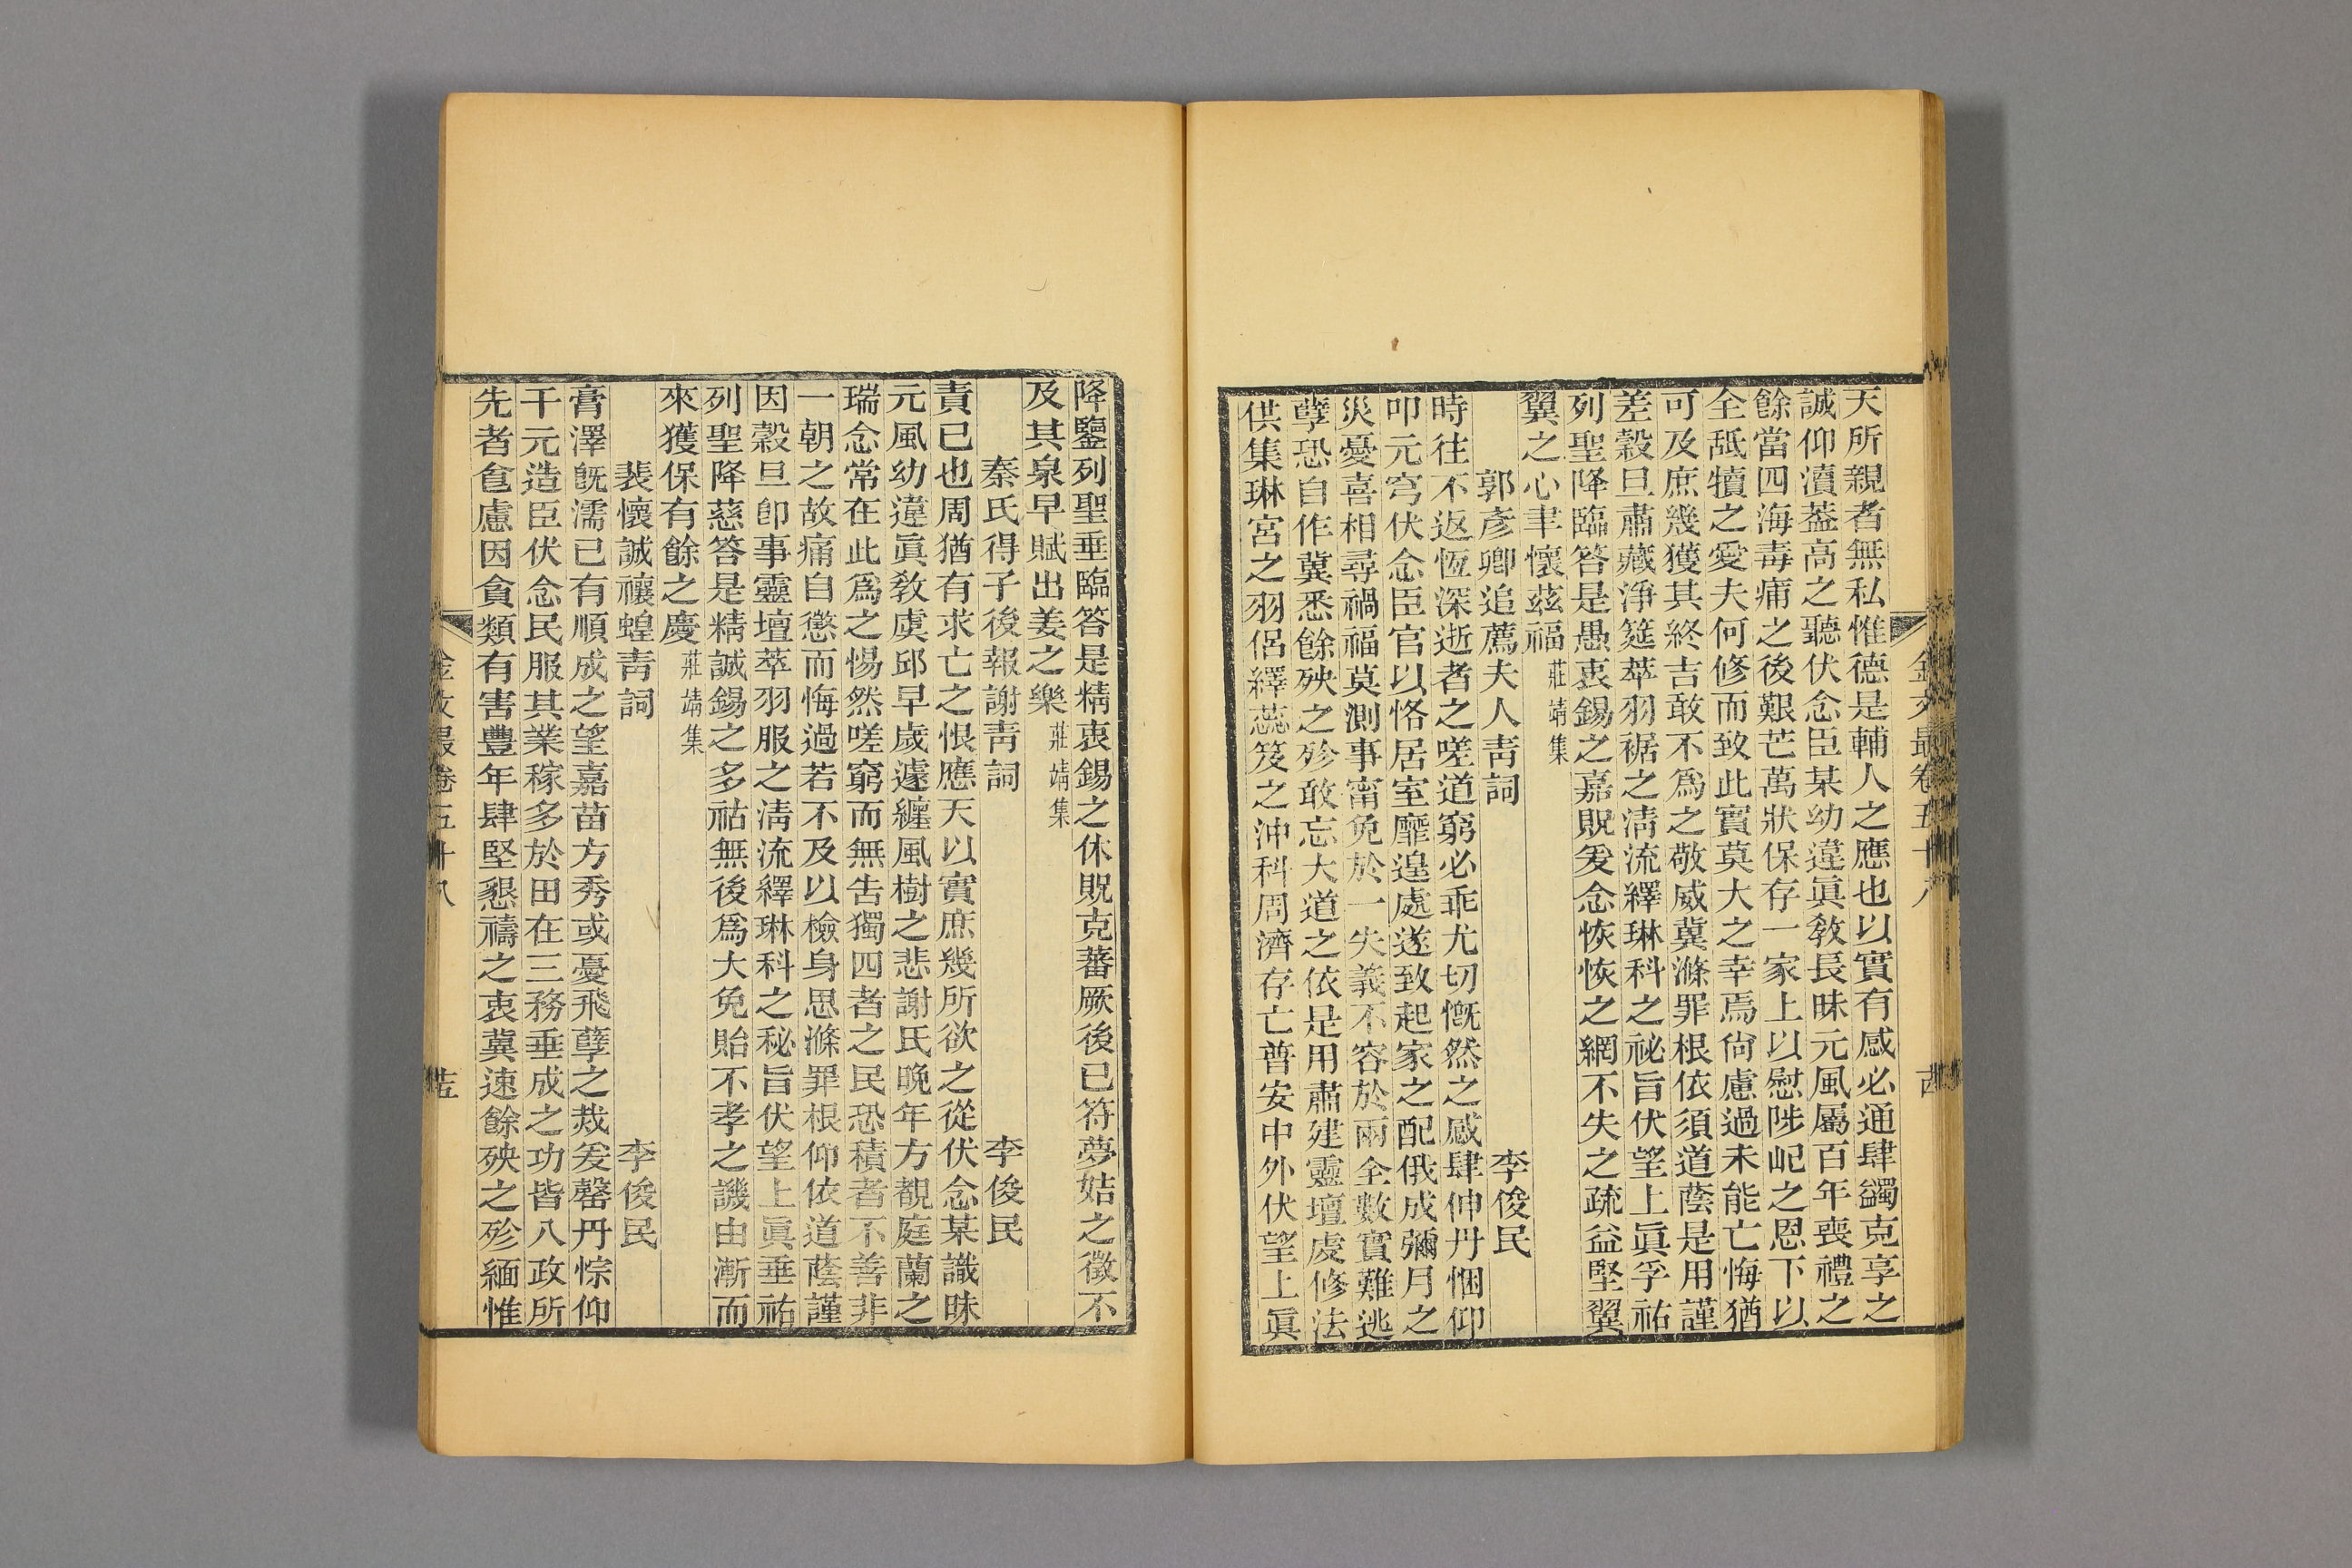 天所親者無私惟德是輔人之應也以實有感必通肆蠲克享之
誠仰瀆葢高之聽伏念臣某幼違眞敎長昧元風屬百年喪禮之
餘當四海毒痡之後艱芒萬狀保存一家上以慰陟屺之恩下以
全舐犢之愛夫何修而致此實莫大之幸焉尙慮過未能亡悔猶
可及庶幾獲其終吉敢不爲之敬威冀滌罪根依須道蔭是用謹
差穀旦肅藏淨筵萃羽裾之淸流繹琳科之祕旨伏望上眞孚祐
列聖降臨答是愚衷錫之嘉貺爰念恢恢之網不失之疏益堅翼
翼之心聿懷兹福莊靖集
郭彥卿追薦夫人靑詞 李俊民
時往不返恆深逝者之嗟道窮必乖尤切慨然之感肆伸丹悃仰
叩元穹伏念臣官以恪居室靡遑處遂致起家之配俄成彌月之
災憂喜相尋禍福莫測事甯免於一失義不容於兩全數實難逃
孽恐自作冀悉餘殃之殄敢忘大道之依是用肅建靈壇虔修法
供集琳宮之羽侶繹蕊笈之沖科周濟存亡普安中外伏望上眞
金文最卷五十八
降鑒列聖垂臨答是精衷錫之休貺克蕃厥後已符夢姞之徵不
及其泉早賦出姜之樂莊靖集
秦氏得子後報謝靑詞 李俊民
責已也周猶有求亡之恨應天以實庶幾所欲之從伏念某識昧
元風幼違眞敎虞邱早歲遽纏風樹之悲謝氏晚年方覩庭蘭之
瑞念常在此爲之惕然嗟窮而無告獨四者之民恐積者不善非
一朝之故痛自懲而悔過若不及以檢身思滌罪根仰依道蔭謹
因穀旦卽事靈壇萃羽服之淸流繹琳科之秘旨伏望上眞垂祐
列聖降慈答是精誠錫之多祜無後爲大免貽不孝之譏由漸而
來獲保有餘之慶莊靖集
裴懷誠禳蝗靑詞 李俊民
膏澤旣濡已有順成之望嘉苗方秀或憂飛孽之烖爰罄丹悰仰
干元造臣伏念民服其業稼多於田在三務垂成之功皆八政所
先者食慮因貪類有害豐年肆堅懇禱之衷冀速餘殃之殄緬惟
金文最卷五十八